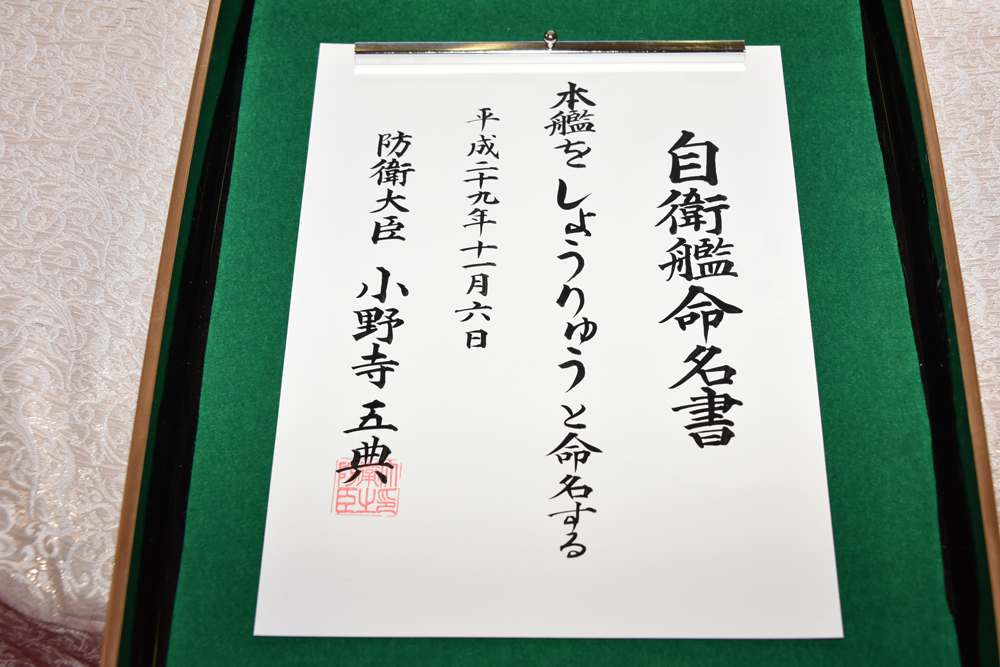 自衛艦命名書
本艦をしょうりゅうと命名する
平成二十九年十一月六日
防衛大臣 小野寺五典